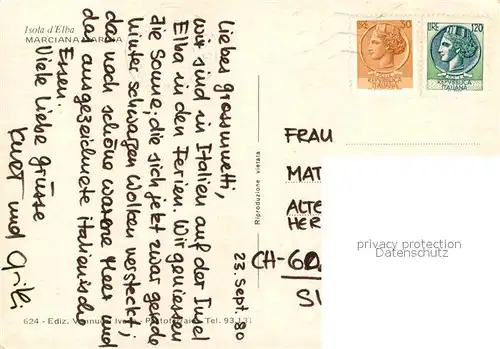 Isola d'Elba
MARCIANA MARINA
Liebes Grossmuetti,
wir sind in Italien auf der Insel
Elba in den Ferien. Wir geniessen
die Sonne, die sich jetzt zwar gerade
hinter schwarzen Wolken versteckt,
das noch schöne warme Meer und
das ausgezeichnete italienische
Essen.
Viele liebe Grüsse
Kurt und
23. Sept 80
Riproduzione vietata
624 - Ediz. Tel. 93.131
50
LIRE 120
REPUBBLICA
ITALIANA
REPUBBLICA
ITALIANA
FRAU
MAT
ALTE
HER
CH-60
privacy protection
www.oldthing.com